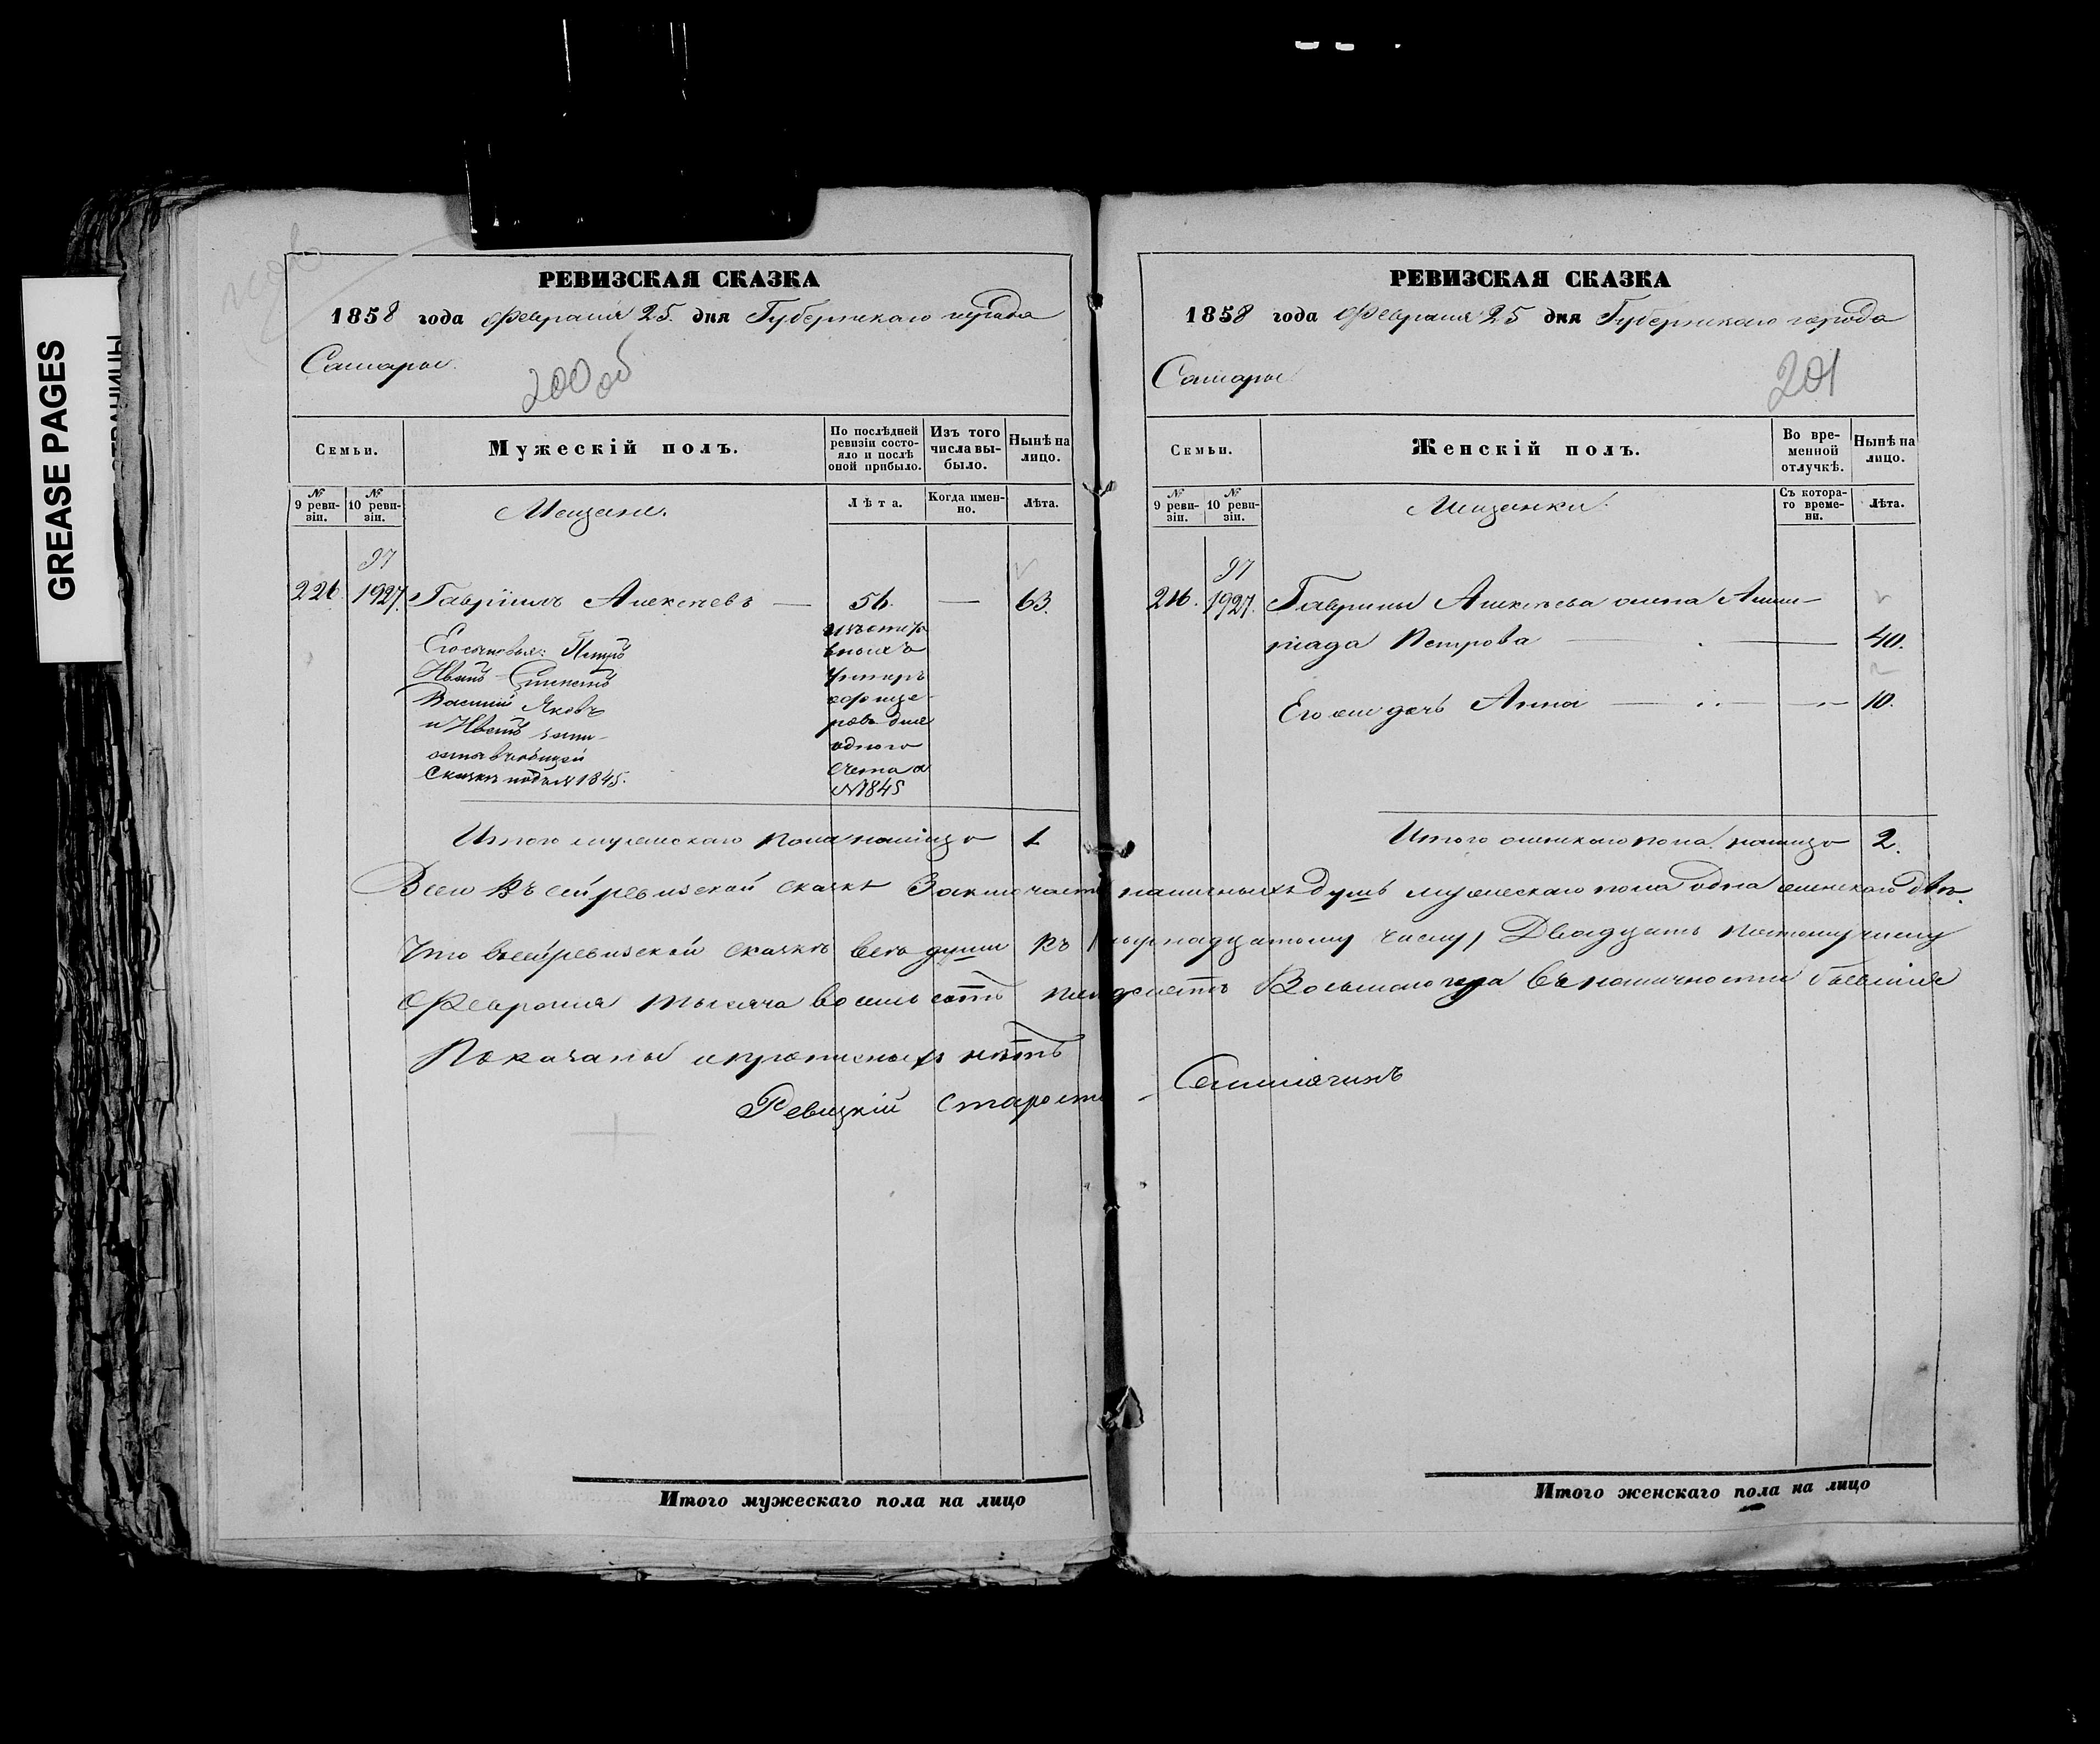 GREASE PAGES
РЕВИЗСКАЯ СКАЗКА
1858 года Февраля 25 дня Губернскаго города
Самары.
200 об
Семьи.
Мужескій полъ.
По послѣдней ревизіи состояло и послѣ оной прибыло.
Изъ того числа выбыло.
Нынѣ на лицо.
№ 9 ревизіи.
№ 10 ревизіи.
Мещане.
Лѣта.
Когда именно.
Лѣта.
97
226. 1927. Гавріилъ Алексѣевъ — 56. — 63.
Его сыновья: Петръ
Иванъ
Василій Яковъ
и Иванъ
Сказкѣ подъ № 1845.
унтеръ
офице-
ровъ для
одного
счета
№ 1845
Итого мужескаго пола налицо 1
РЕВИЗСКАЯ СКАЗКА
1858 года Февраля 25 дня Губернскаго города
Самары
201
Семьи.
Женскій полъ.
Во временной отлучкѣ.
Нынѣ на лицо.
№ 9 ревизіи.
№ 10 ревизіи.
Мещанки.
Съ котораго времени.
Лѣта.
97
1927. Гаврилы Алексѣева жена
Петрова — 40.
Его же дочь Анна — 10.
Итого женскаго пола налицо 2.
Всего въ сей ревизской сказкѣ Заключается наличныхъ душъ мужескаго пола одна женскаго двѣ.
Что въ сей ревизской сказкѣ все души къ Двадцать пятому числу
Февраля тысяча восемь сотъ пятьдесятъ Восьмаго года въ наличности бывшія
Показаны и прописныхъ нѣтъ
Ревизкій Староста
Итого мужескаго пола на лицо
Итого женскаго пола на лицо